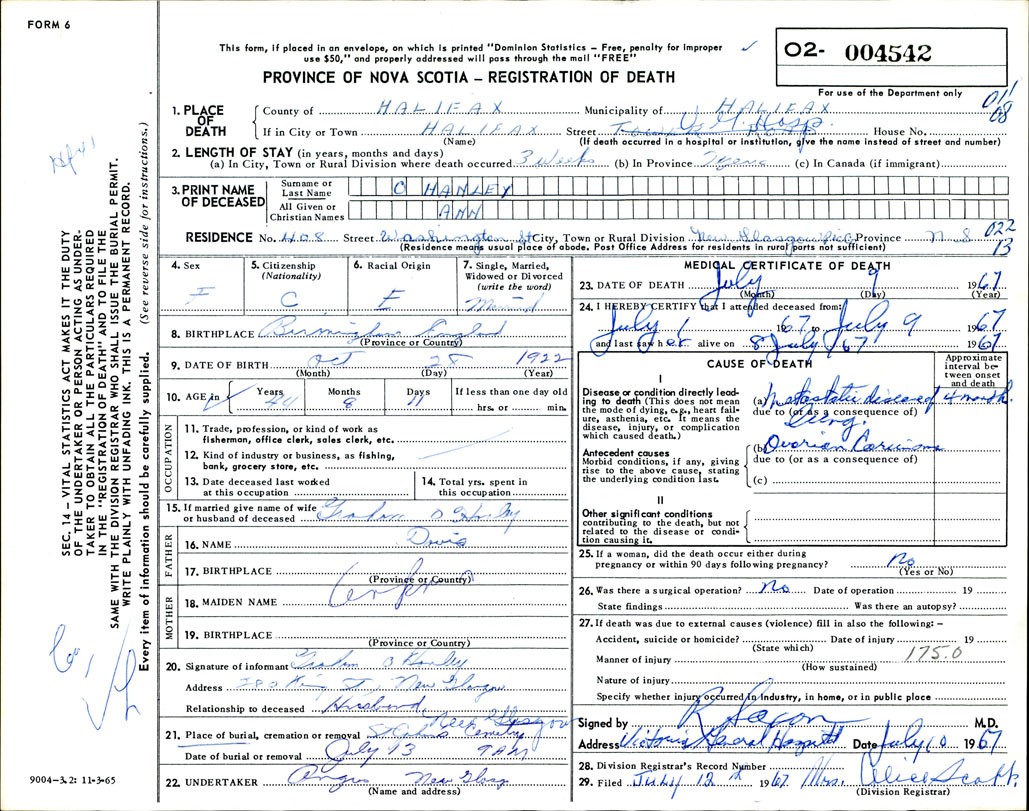 FORM 6
This form, if placed in an envelope, on which is printed "Dominion Statistics – Free, penalty for improper
use $50," and properly addressed will pass through the mail "FREE"
O2- 004542
For use of the Department only
PROVINCE OF NOVA SCOTIA – REGISTRATION OF DEATH
011
08
1. PLACE OF DEATH
County of HALIFAX Municipality of HALIFAX
If in City or Town HALIFAX Street V. G. Hosp. House No.
(Name) (If death occurred in a hospital or institution, give the name instead of street and number)
2. LENGTH OF STAY (in years, months and days)
(a) In City, Town or Rural Division where death occurred 3 weeks (b) In Province (c) In Canada (if immigrant)
3. PRINT NAME OF DECEASED
Surname or Last Name O HANLEY
All Given or Christian Names ANN
RESIDENCE No. 408 Street Washington St City, Town or Rural Division New Glasgow Province N S
022
13
(Residence means usual place of abode. Post Office Address for residents in rural parts not sufficient)
4. Sex
5. Citizenship (Nationality) C
6. Racial Origin E
7. Single, Married, Widowed or Divorced (write the word) Married
8. BIRTHPLACE Birmingham England
(Province or Country)
9. DATE OF BIRTH Oct 28 1922
(Month) (Day) (Year)
10. AGE in Years 44 Months 8 Days 11 If less than one day old
hrs. or min.
OCCUPATION
11. Trade, profession, or kind of work as
fisherman, office clerk, sales clerk, etc.
12. Kind of industry or business, as fishing,
bank, grocery store, etc.
13. Date deceased last worked
at this occupation
14. Total yrs. spent in
this occupation
15. If married give name of wife
or husband of deceased Graham O Hanley
FATHER
16. NAME Davis
17. BIRTHPLACE
(Province or Country)
MOTHER
18. MAIDEN NAME
19. BIRTHPLACE
(Province or Country)
20. Signature of informant Graham O Hanley
Address New Glasgow
Relationship to deceased Husband
21. Place of burial, cremation or removal Cemetery New Glasgow
Date of burial or removal July 13 9 AM
22. UNDERTAKER Angus New Glasg
(Name and address)
MEDICAL CERTIFICATE OF DEATH
23. DATE OF DEATH July 9 1967
(Month) (Day) (Year)
24. I HEREBY CERTIFY that I attended deceased from
July 1 1967 to July 9 1967
and last saw her alive on 8 July /67 1967
CAUSE OF DEATH
Approximate interval between onset and death
I
Disease or condition directly leading to death (This does not mean the mode of dying, e.g., heart failure, asthenia, etc. It means the disease, injury, or complication which caused death.)
(a) Metastatic disease of 4 months.
due to (or as a consequence of)
Lung.
Antecedent causes
Morbid conditions, if any, giving rise to the above cause, stating the underlying condition last.
(b) Ovarian Carcinoma
due to (or as a consequence of)
(c)
II
Other significant conditions
contributing to the death, but not related to the disease or condition causing it.
25. If a woman, did the death occur either during
pregnancy or within 90 days following pregnancy? No
(Yes or No)
26. Was there a surgical operation? No Date of operation 19
State findings Was there an autopsy?
27. If death was due to external causes (violence) fill in also the following: –
Accident, suicide or homicide? Date of injury 19
(State which)
Manner of injury 175.0
(How sustained)
Nature of injury
Specify whether injury occurred in industry, in home, or in public place
Signed by M.D.
Address Victoria General Hospital Date July 10 1967
28. Division Registrar's Record Number
29. Filed July 12th 1967 Mrs. Alice Scott
(Division Registrar)
SEC. 14 – VITAL STATISTICS ACT MAKES IT THE DUTY
OF THE UNDERTAKER OR PERSON ACTING AS UNDER-
TAKER TO OBTAIN ALL THE PARTICULARS REQUIRED
IN THE "REGISTRATION OF DEATH" AND TO FILE THE
SAME WITH THE DIVISION REGISTRAR WHO SHALL ISSUE THE BURIAL PERMIT.
WRITE PLAINLY WITH UNFADING INK. THIS IS A PERMANENT RECORD.
Every item of information should be carefully supplied. (See reverse side for instructions.)
9004-3.2: 11-3-65